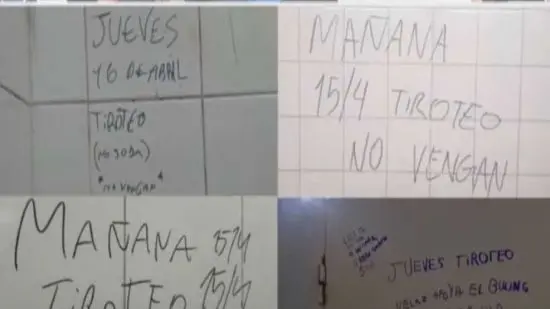 JUEVES
16 DE ABRIL
TIROTEO
(NO JODA)
"NO VENGAN"
MAÑANA
15/4 TIROTEO
NO VENGAN
MAÑANA 15/4
TIROTEO 15/4
JUEVES TIROTEO
EL BULING